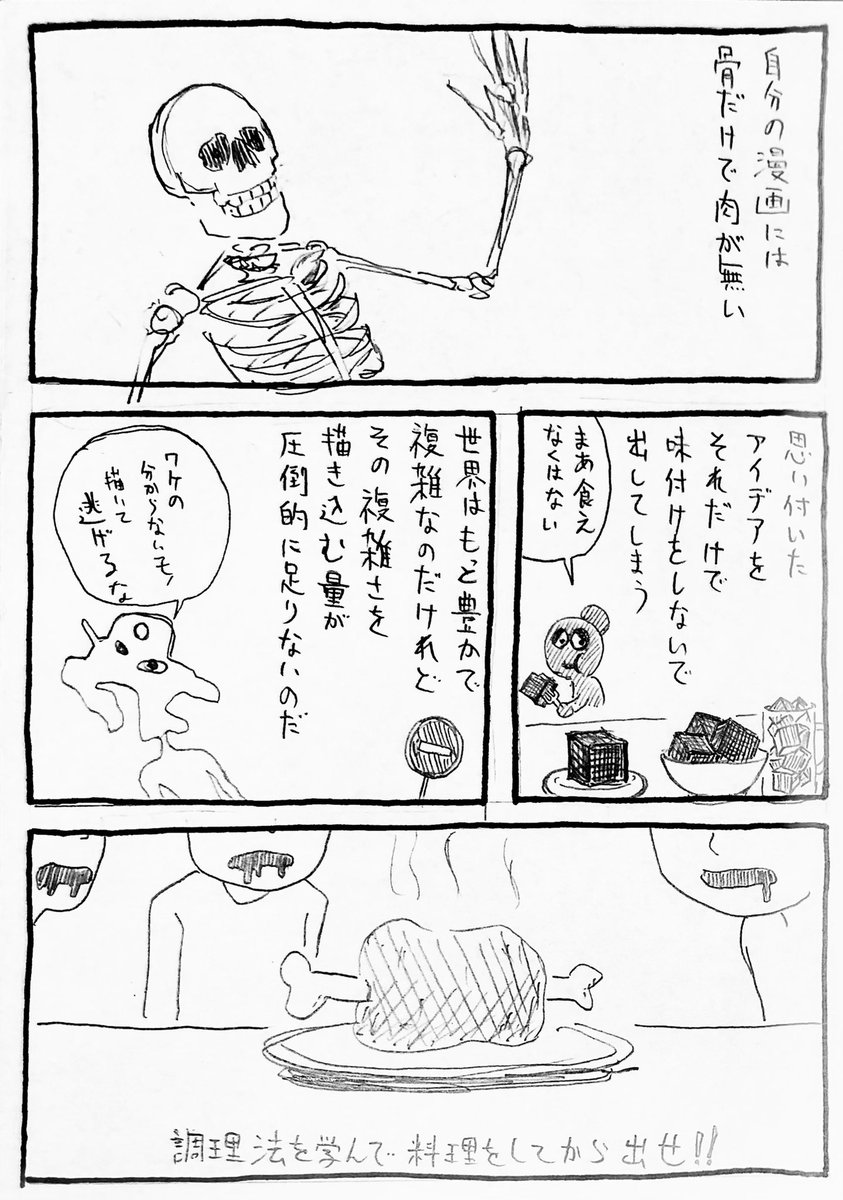 自分の漫画には
骨だけで肉が無い
思い付いた
アイデアを
それだけで
味付けをしないで
出してしまう
まあ食え
なくはない
世界はもっと豊かで
複雑なのだけれど
その複雑さを
描き込む量が
圧倒的に足りないのだ
ワケの
分からないモノ
描いて
逃げるな
調理法を学んで料理をしてから出せ!!